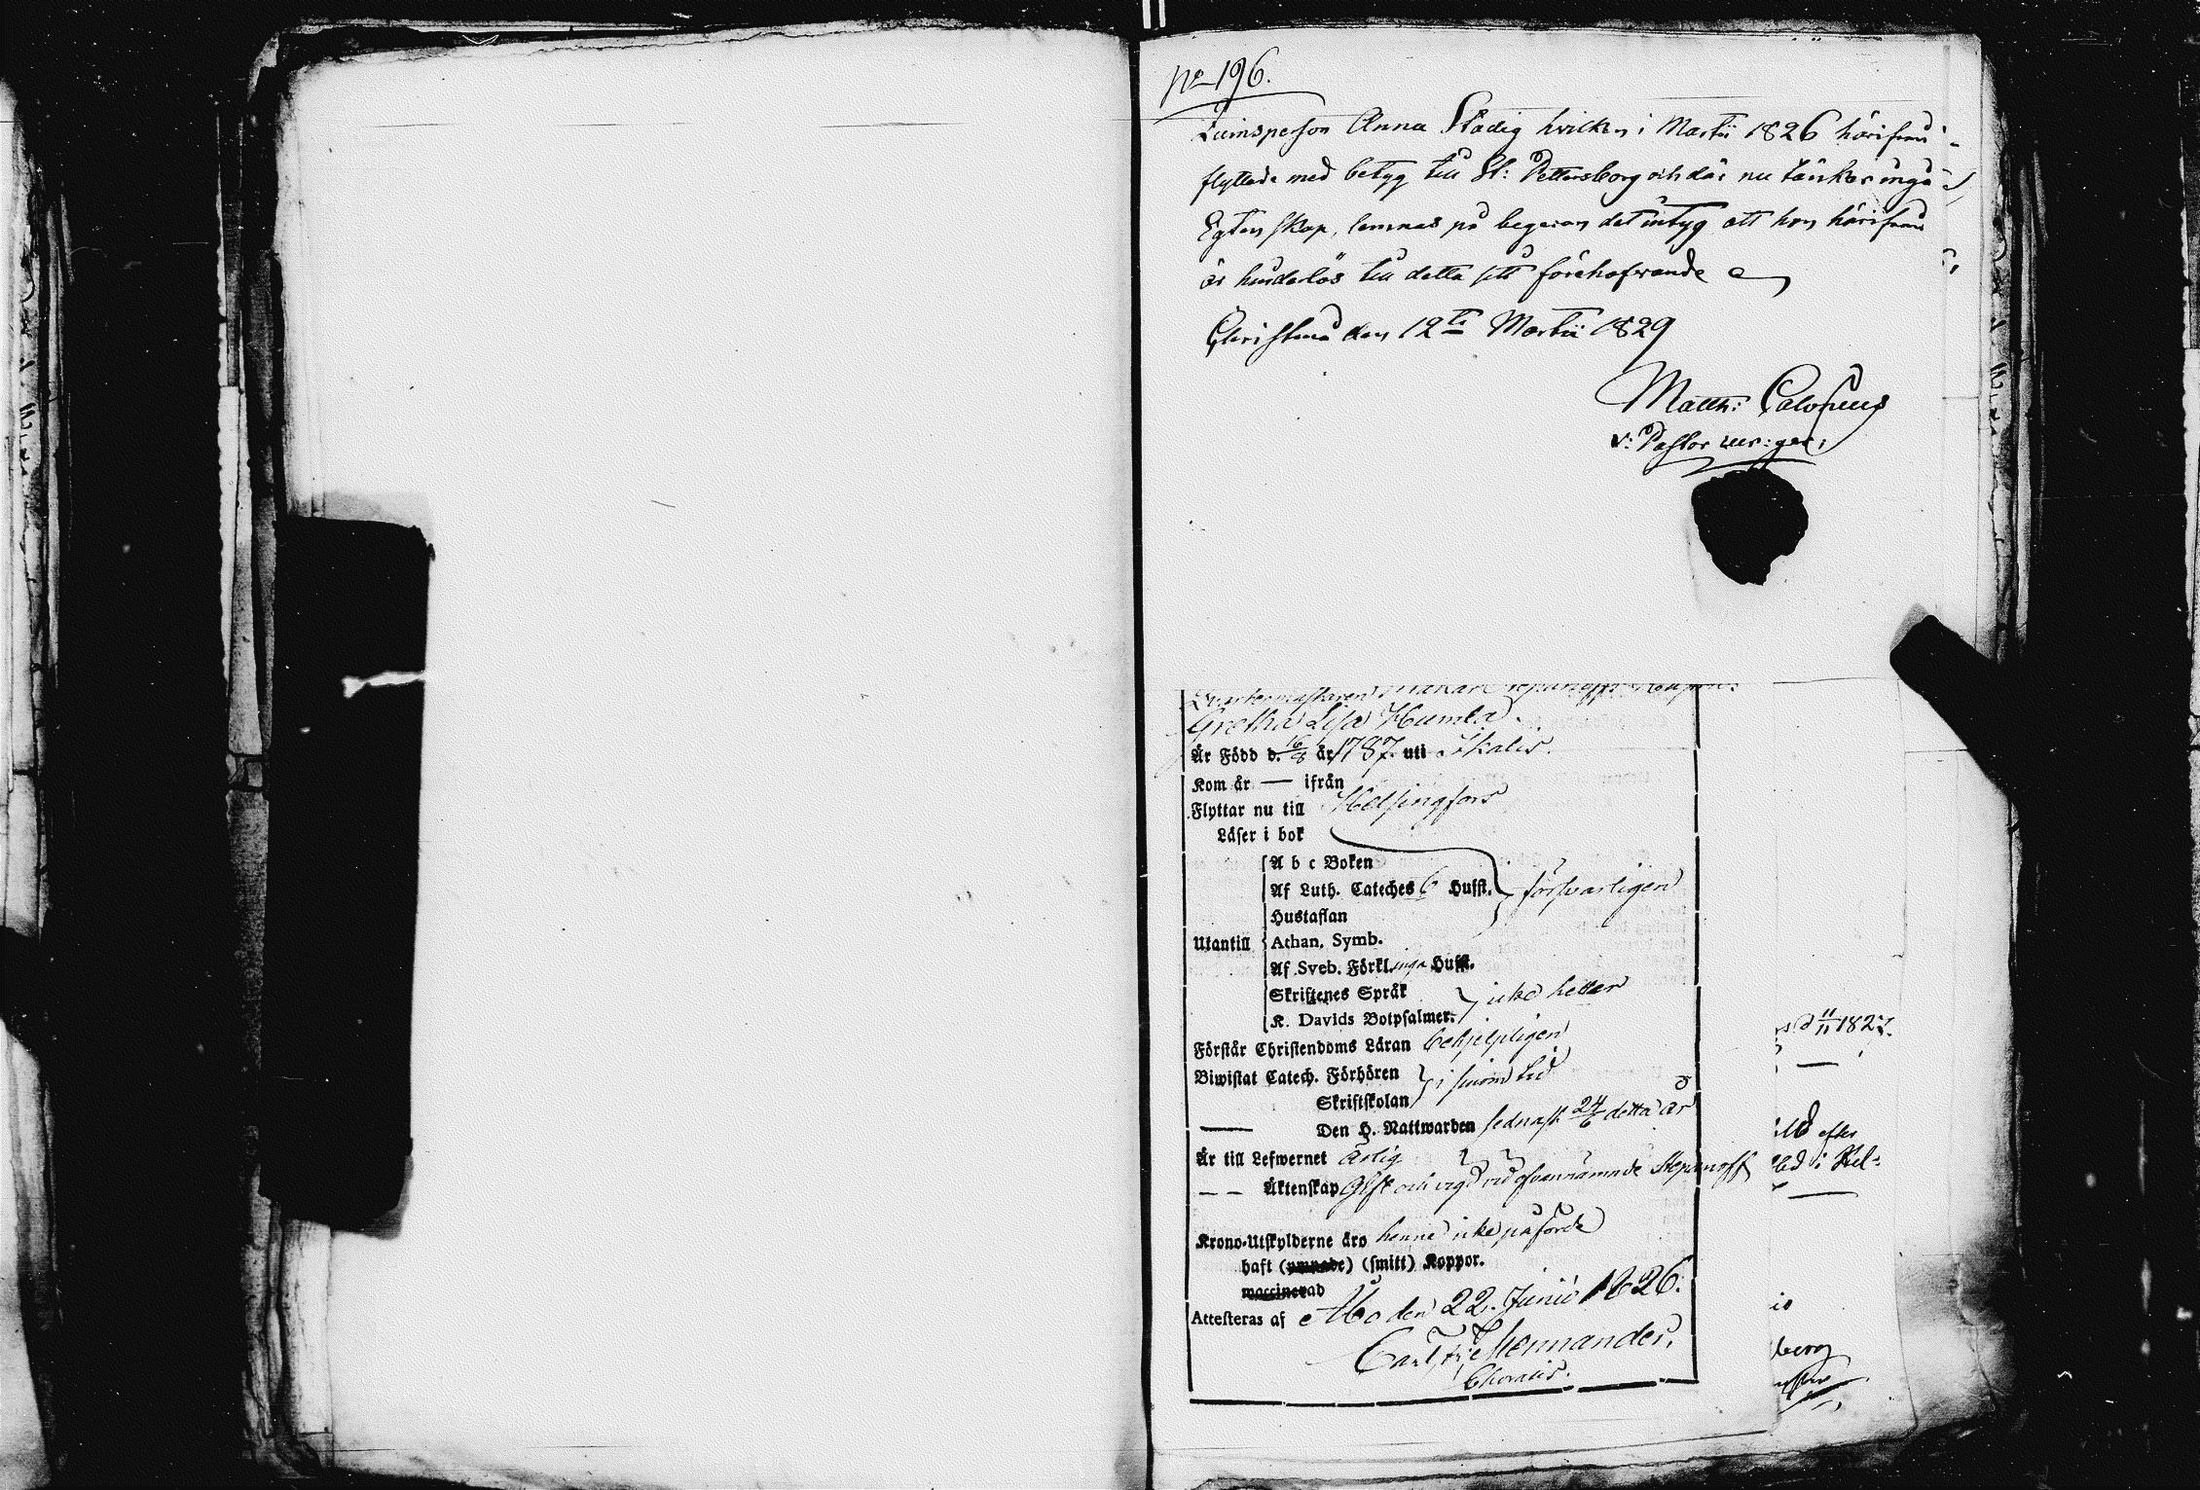 No 196.
Qvinsperson Anna Städig hvilken i Martii 1826 härifrån
flyttade med betyg till St: Pettersborg och där nu tänker ingå
Egtenskap, lemnas på begäran det intyg att hon härifrån
är hinderlös till detta sitt förehafvande
Christina den 12te Martii 1829
Matth:
v: Pastor
Gretha Lisa Humla.
Är Född d. 16/8 år 1787 uti Ikalis.
Kom år — ifrån
Flyttar nu till Helsingfors
Läser i bok
A b c Boken
Af Luth. Cateches 6 Hufst. försvarligen
Hustaflan
Utantill Athan. Symb.
Af Sveb. Förkl. inga Hufst.
Skriftenes Språk icke heller
K. Davids Botpsalmer.
Förstår Christendoms Läran behjelpligen
Biwistat Catech. Förhören i sinom tid
Skriftskolan
— Den H. Nattwarden sednast 24/6 detta år
Är till Lefwernet ärlig
— — Äktenskap Gift och vigd vid ofvannämnde Stepanoff
Krono-Utskylderne äro henne icke påförde
haft (ympade) (smitt) Koppor.
waccinerad
Attesteras af Åbo den 22. Junii 1826.
Carl Fr: Hennander.
d 11/11 1827.
efter
i Hel-
berg